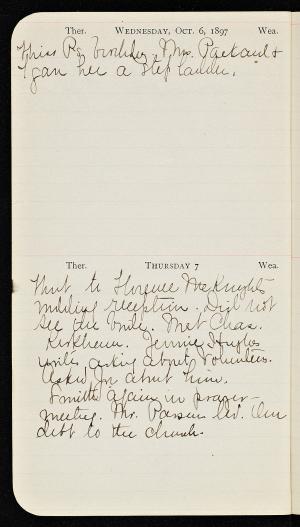 Ther. WEDNESDAY, OCT. 6, 1897 Wea.
Miss R's birthday. Mrs. Packard &
I gave her a step ladder.
Ther. THURSDAY 7 Wea.
Went to Florence McKnight's
wedding reception. Did not
see the bride. Met Chas.
Kirkham. Jennie Hughes
writes asking about Volunteers.
Asked Jn about him.
Smith again in prayer-
meeting. Mr. Parsons led. Our
debt to the church.